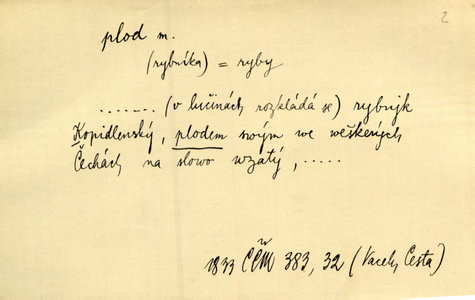 2
plod m.
(rybníka) = ryby
....... (v lučinách rozkládá se) rybnjk
Kopidlenský, plodem swým we weškerých
Čechách na slowo wzatý, .....
1833 ČČM 383, 32 (Vacek, Cesta)